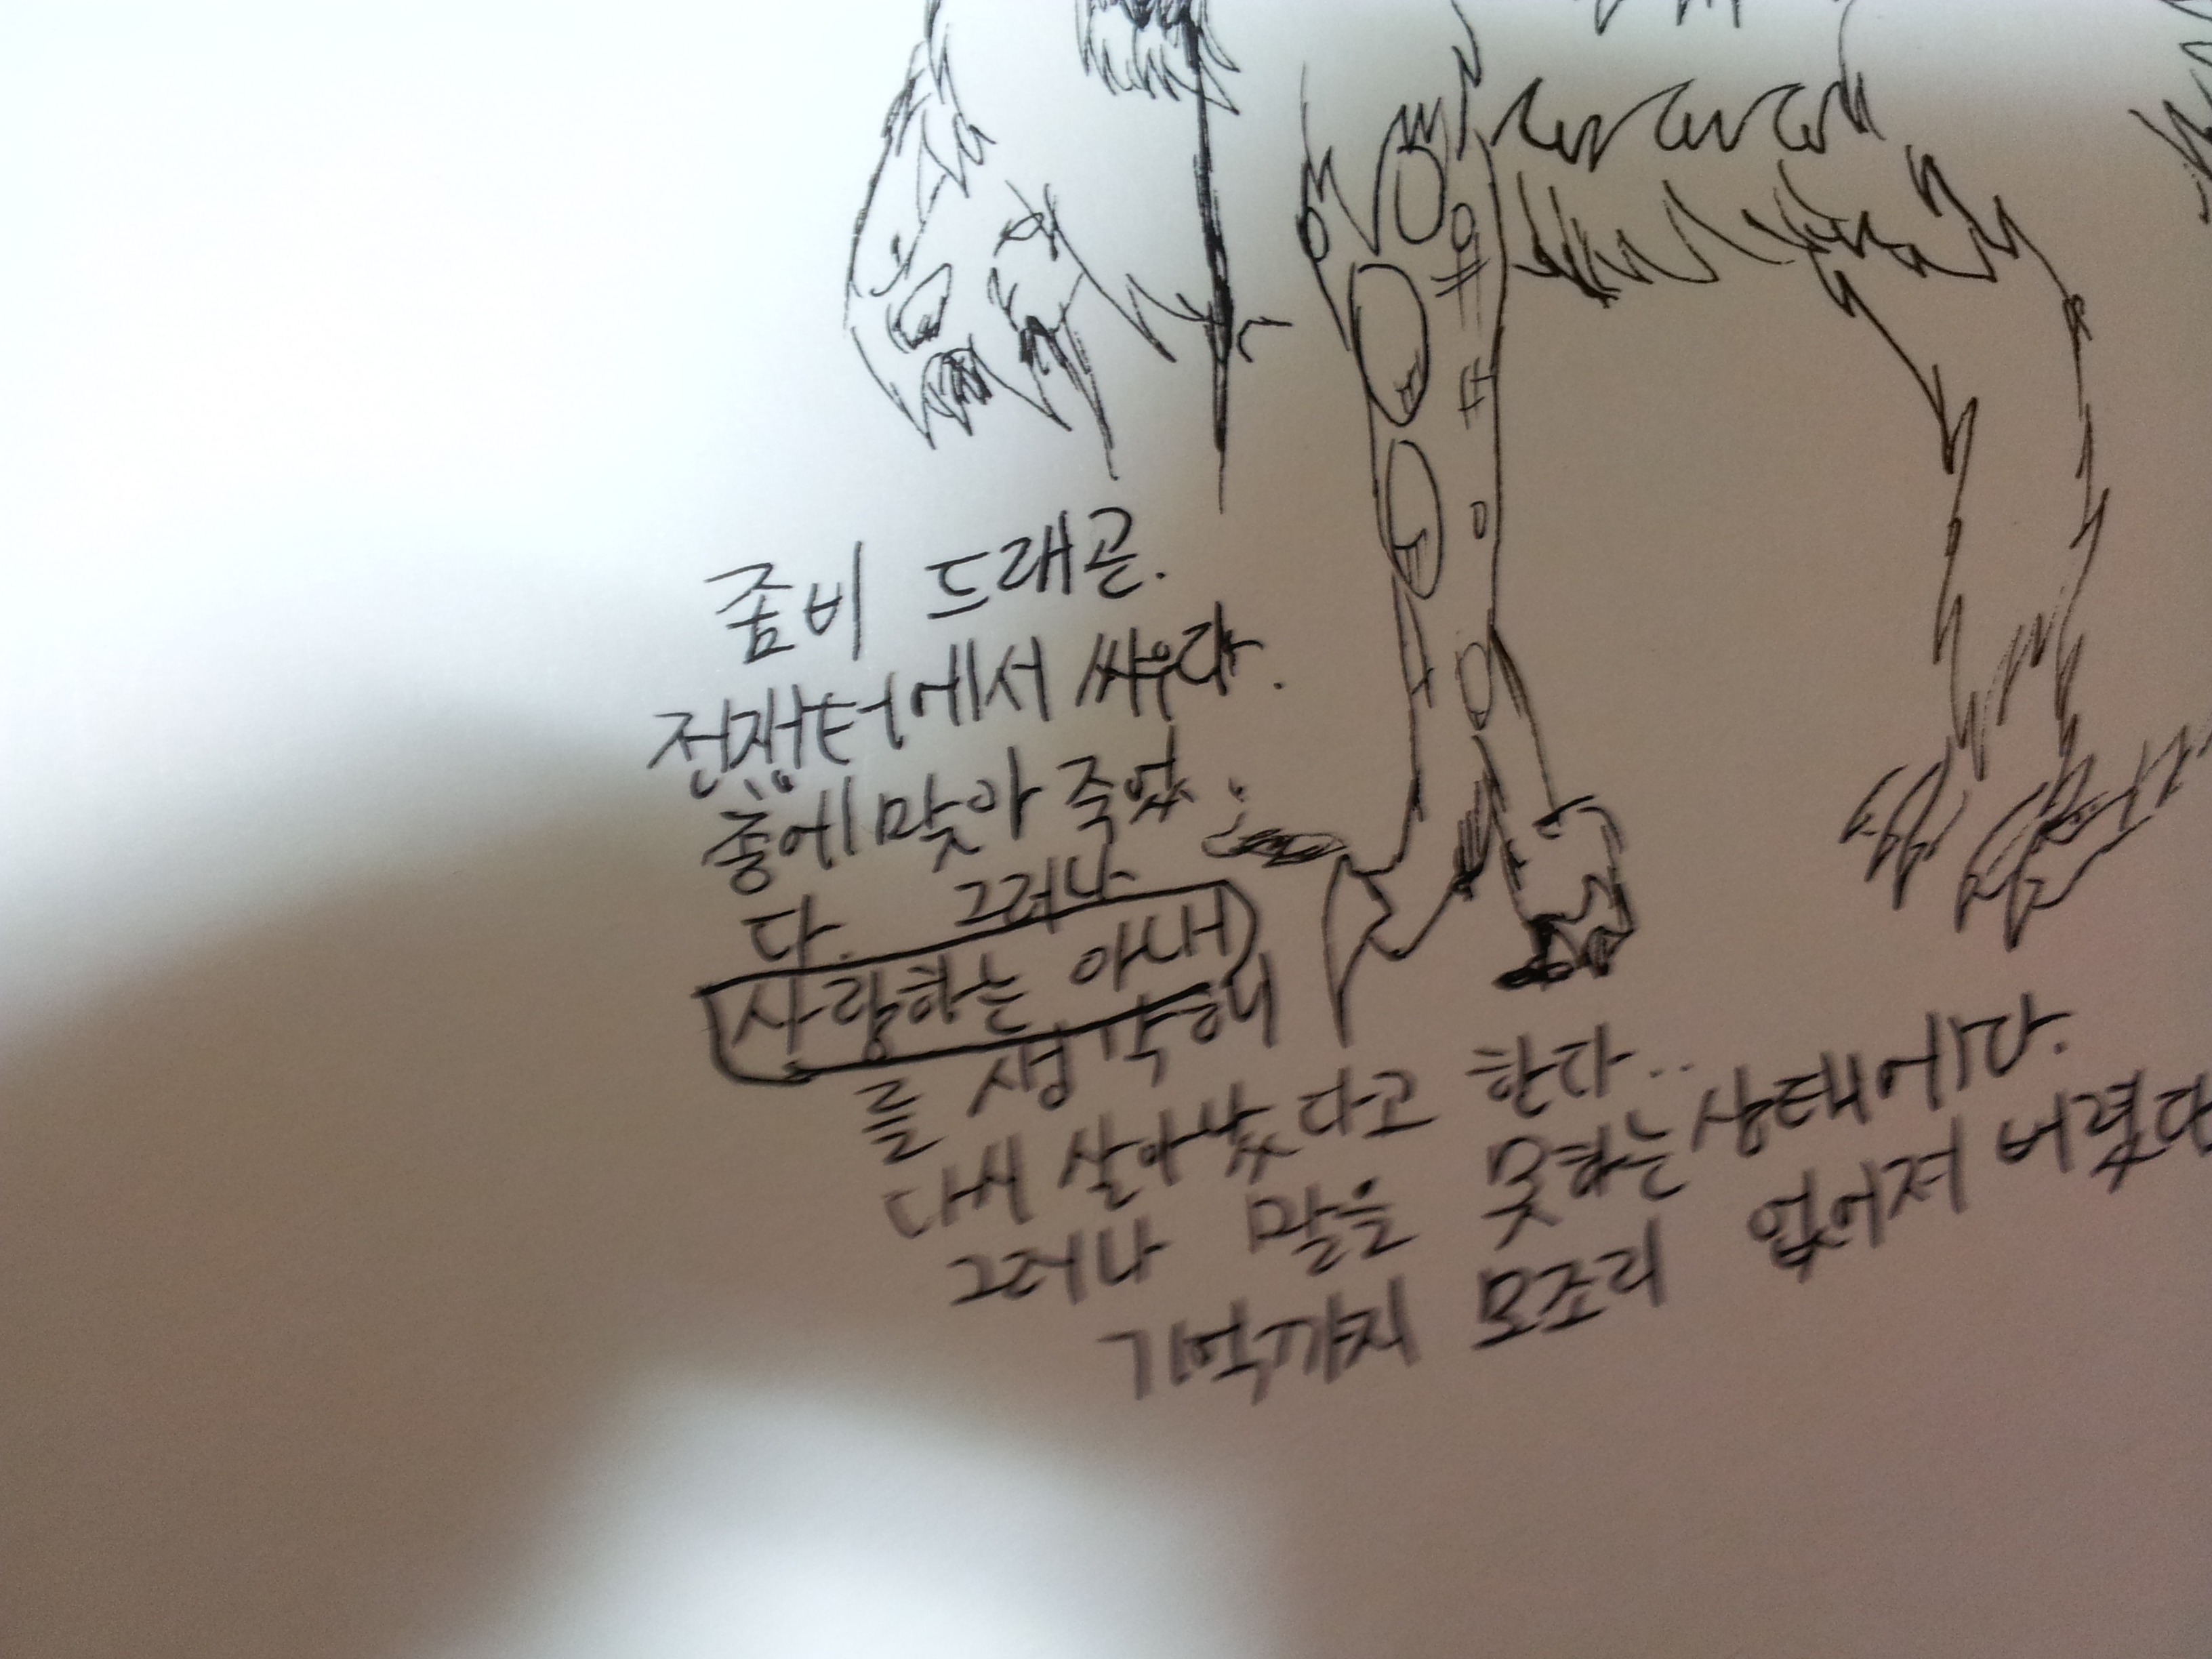 좀비 드래곤.
전쟁터에서 싸우다.
총에 맞아 죽었
다. 그러나
사랑하는 아내
를 생각해
다시 살아났다고 한다..
그러나 말을 못하는 상태에다.
기억까지 모조리 없어져 버렸다